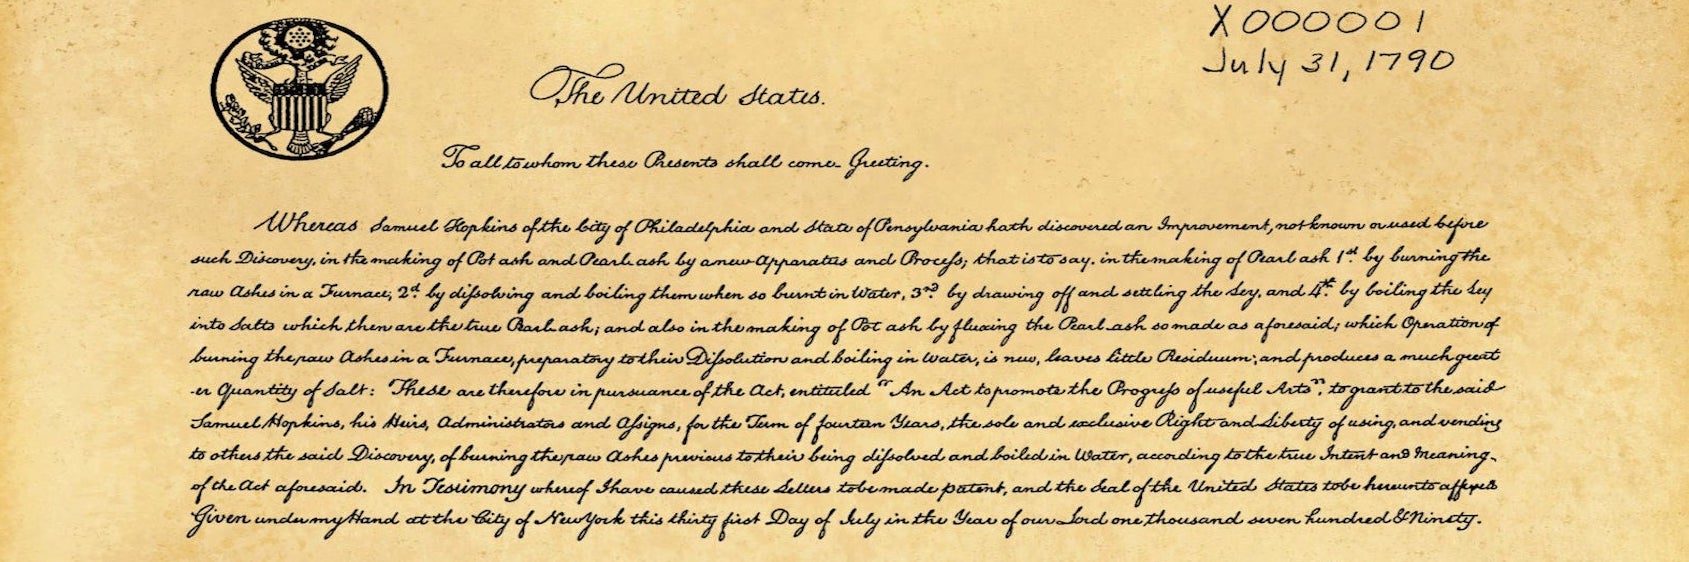 X000001
July 31, 1790
The United States.
To all to whom these Presents shall come Greeting.
Whereas Samuel Hopkins of the City of Philadelphia and State of Pensylvania hath discovered an Improvement, not known or used before
such Discovery, in the making of Pot ash and Pearl ash by a new Apparatus and Process; that is to say, in the making of Pearl ash 1st. by burning the
raw Ashes in a Furnace, 2d. by dissolving and boiling them when so burnt in Water, 3rd. by drawing off and settling the Ley, and 4th. by boiling the Ley
into Salts which then are the true Pearl ash; and also in the making of Pot ash by fluxing the Pearl ash so made as aforesaid; which Operation of
burning the raw Ashes in a Furnace, preparatory to their Dissolution and boiling in Water, is new, leaves little Residuum; and produces a much great
-er Quantity of Salt: These are therefore in pursuance of the Act, entituled "An Act to promote the Progress of useful Arts", to grant to the said
Samuel Hopkins, his Heirs, Administrators and Assigns, for the Term of fourteen Years, the sole and exclusive Right and Liberty of using, and vending
to others the said Discovery, of burning the raw Ashes previous to their being dissolved and boiled in Water, according to the true Intent and Meaning
of the Act aforesaid. In Testimony whereof I have caused these Letters to be made patent, and the Seal of the United States to be hereunto affixed
Given under my Hand at the City of New York this thirty first Day of July in the Year of our Lord one thousand seven hundred & Ninety.